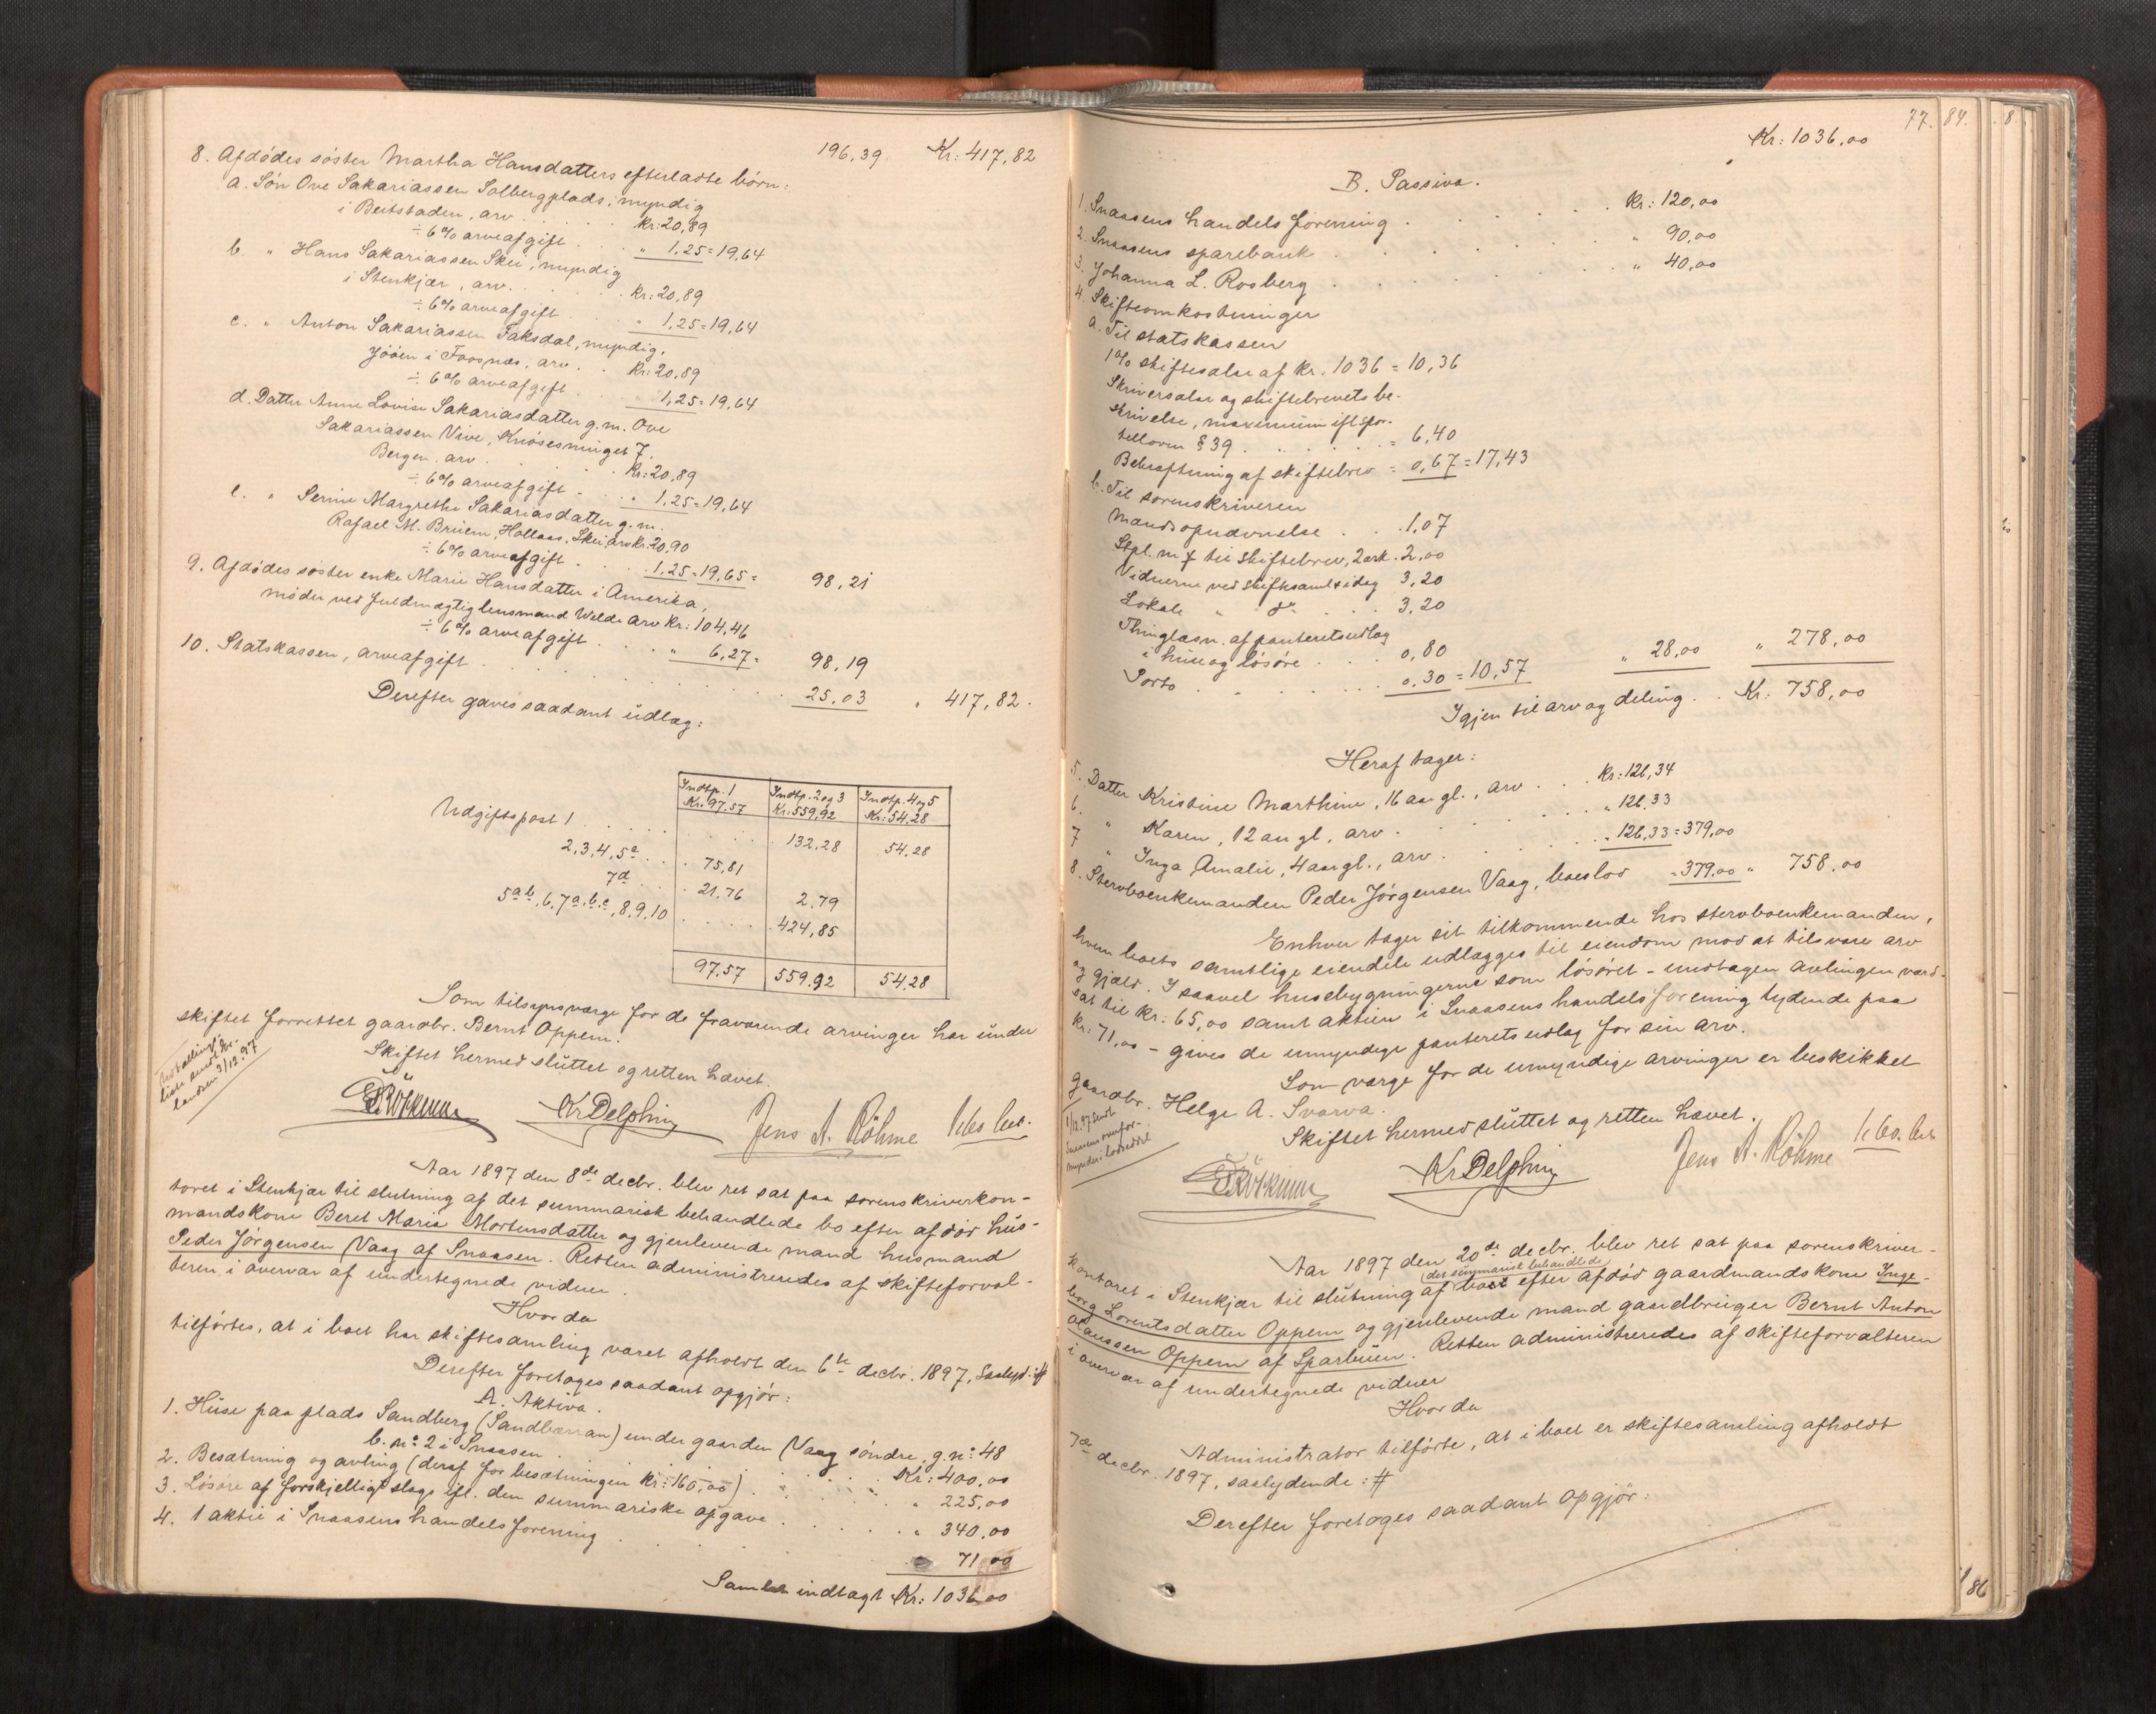 196,39. Kr: 417,82
8. Afdødes søster Martha Hansdatters efterladte børn:
a. Søn Ove Sakariassen Solbergplads, myndig
i Beitstaden, arv . . . . Kr: 20,89
÷ 6% arveafgift . . . " 1,25 = 19,64
b. " Hans Sakariassen Skei, myndig
i Stenkjær, arv. . . . . Kr: 20,89
÷ 6% arveafgift . . . " 1,25 = 19,64
c. " Anton Sakariassen Faksdal, myndig,
Jøøen i Fosnæs, arv . . Kr: 20,89
÷ 6% arveafgift . . . 1,25 = 19,64
d. Datter Anne Lovise Sakariasdatter g.m. Ove
Sakariassen Vive, Knøsesminget 7.
Bergen, arv . . . . Kr: 20,89
÷ 6% arveafgift . . . " 1,25 = 19,64
e. " Serine Margrethe Sakariasdatter g.m.
Rafael M. Brüem, Hollaas, Skei, arv Kr: 20,90
÷ 6% arveafgift . . . 1,25 = 19,65 = 98,21
9. Afdødes søster enke Marie Hansdatter i Amerika,
møder ved fuldmægtig lensmand Welde arv Kr: 104,46
÷ 6% arveafgift . . . " 6,27 = 98,19
10. Statskassen, arveafgift . . . . 25,03 " 417,82.
Derefter gaves saadant udlæg:
Indtp. 1 Indtp. 2 og 3 Indtp. 4 og 5
Kr: 97,57 Kr: 559,92 Kr: 54,28
Udgiftspost 1 . . . . . 132,28 54,28
2,3,4,5a . . . 75,81
7d . . . 21,76 2,79
5ab,6,7a,b,c,8,9,10 . . . 424,85
97,57 559,92 54,28
Som tilsynsværge for de fraværende arvinger har under
skiftet forrettet gaardbr. Bernt Oppem.
Skiftet hermed sluttet og retten hævet.
3/12.97
Kr Delphin Jens A. Røhme
Aar 1897 den 8de decbr. blev ret sat paa sorenskriverkon-
toret i Stenkjær til slutning af det summarisk behandlede bo efter afdød hus-
mandskone Beret Maria Mortensdatter og gjenlevende mand husmand
Peder Jørgensen Vaag af Snaasen. Retten administreredes af skifteforval-
teren i overvær af undertegnede vidner.
Hvorda
tilførtes, at i boet har skiftesamling været afholdt den 6te decbr. 1897, saalyd.: #
Derefter foretoges saadant opgjør:
A. Aktiva.
1. Huse paa plads Sandberg (Sandbærran) under gaarden Vaag søndre, g.no 48
b.no 2 i Snaasen . . . . . Kr: 400,00
2. Besætning og avling (deraf for besætningen Kr: 160,00) . . " 225,00
3. Løsøre af forskjelligt slags ifl. den summariske opgave . . . " 340,00
4. 1 aktie i Snaasens handelsforening . . . . 71,00
Samlet indtægt Kr: 1036,00
77. 84. 8.
Kr: 1036,00
B. Passiva.
1. Snaasens handelsforening . . . . . Kr: 120,00
2. Snaasens sparebank . . . . . " 90,00
3. Johanna L. Rosberg . . . . . " 40,00
4. Skifteomkostninger
a. Til statskassen
1% skiftesalær af Kr. 1036 = 10,36
Skriversalær og skiftebrevets be-
skrivelse, maximum ifl. spor-
telloven § 39 . . . . = 6,40
Bekræftning af skiftebrev = 0,67 = 17,43
b. Til sorenskriveren
Mandsopnævnelse . . 1,07
Stpl. m f til skiftebrev, 2 ark . 2,00
Vidnerne ved skiftesaml. & idag 3,20
Lokale " do . . . 3,20
Thinglæsn. af panteretsudlæg
i huse og løsøre . . . 0,80
Porto . . . . . 0,30 = 10,57 " 28,00 " 278,00
Igjen til arv og deling . . Kr: 758,00
Heraf tager:
5. Datter Kristine Marthine, 16 aar gl., arv . . Kr: 126,34
6. " Karen, 12 aar gl, arv . . . . . " 126,33
7 " Inga Amalie, 4 aar gl., arv . . . . . 126,33 = 379,00
8. Stervboenkemanden Peder Jørgensen Vaag, boeslod = 379,00 " 758,00
Enhver tager sit tilkommende hos stervboenkemanden,
hvem boets samtlige eiendele udlægges til eiendom mod at tilsvare arv
og gjæld. I saavel husebygningerne som løsøret - undtagen avlingen værd-
sat til Kr: 65,00 samt aktien i Snaasens handelsforening lydende paa
Kr: 71,00 - gives de umyndige panteretsudlæg for sin arv.
Som værge for de umyndige arvinger er beskikket
gaardbr. Helge A. Svarva.
Skiftet hermed sluttet og retten hævet.
Kr Delphin Jens A. Røhme
Aar 1897 den 20de decbr. blev ret sat paa sorenskriver-
kontoret i Stenkjær til slutning af det summarisk behandlede bo efter afdød gaardmandskone Inge-
borg Lorentsdatter Oppem og gjenlevende mand gaardbruger Bernt Anton
Olaussen Oppem af Sparbuen. Retten administreredes af skifteforvalteren
i overvær af undertegnede vidner
Hvorda
Administrator tilførte, at i boet er skiftesamling afholdt
7de decbr. 1897, saalydende: #
Derefter foretoges saadant opgjør:
86